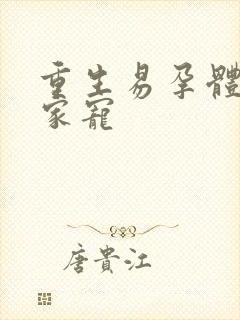 重生易孕體
家寵
唐貴江